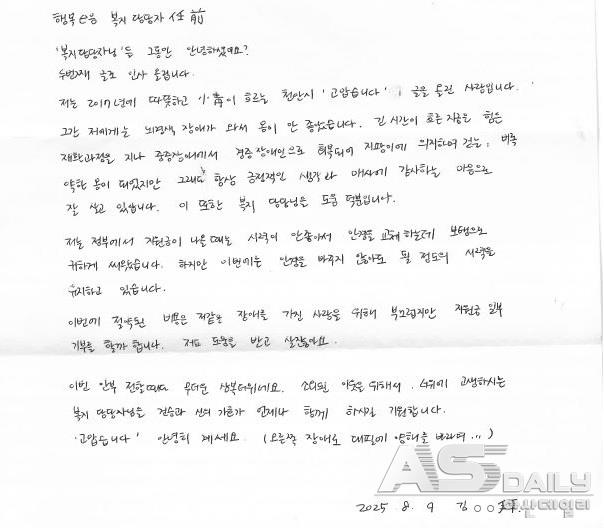 행복e음 복지 담당자 任 前
'복지담당자님'들 그동안 안녕하셨어요?
두번째 글로 인사 올립니다.
저는 2017년에 따뜻하고 소청이 흐르는 천안시 '고맙습니다' 글을 올린 사람입니다.
그간 저에게는 뇌경색 장애가 와서 몸이 안 좋았습니다. 긴 시간이 흐른 지금은 힘든
재활과정을 지나 중증장애에서 경증장애인으로 회복되어 지팡이에 의지하여 걷는, 비록
약한 몸이 되었지만 그래도 항상 긍정적인 생각과 매사에 감사하는 마음으로
잘 살고 있습니다. 이 또한 복지 담당님을 도움 덕분입니다.
저는 정부에서 지원금이 나올때는 시력이 안좋아서 안경을 교체하는데 보탬으로
귀하게 써왔습니다. 하지만 이번에는 안경을 바꾸지 않아도 될 정도의 시력을
유지하고 있습니다.
이번에 절약된 비용은 저같은 장애를 가진 사람을 위해 부끄럽지만 지원금 일부
기부를 할까 합니다. 저도 도움을 받고 살잖아요.
이번 안부 전할때도 무더운 삼복더위네요. 소외된 이웃을 위해서, 더위에 고생하시는
복지 담당자님들 건승과 신의 가름이 언제나 함께 하시길 기원합니다.
'고맙습니다' 안녕히 계세요. (오른쪽 장애로 대필에 양해를 바라며...)
2025 8. 9 김○○
AS DAILY